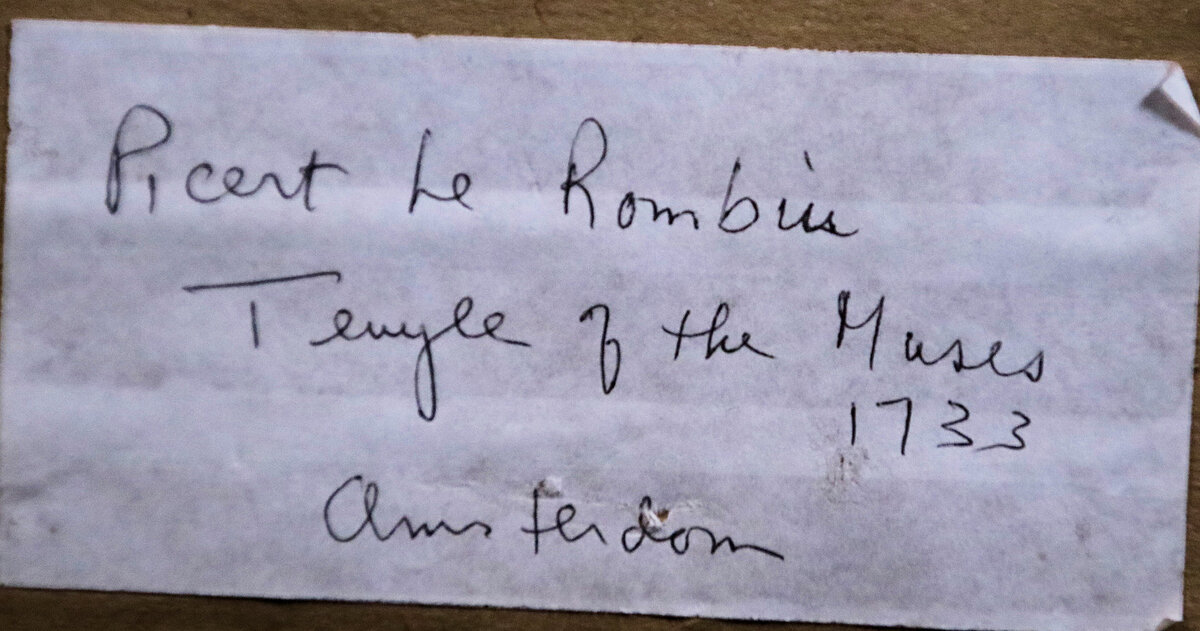 Picert le Rombiu
Temple of the Muses
1733
Amsterdam